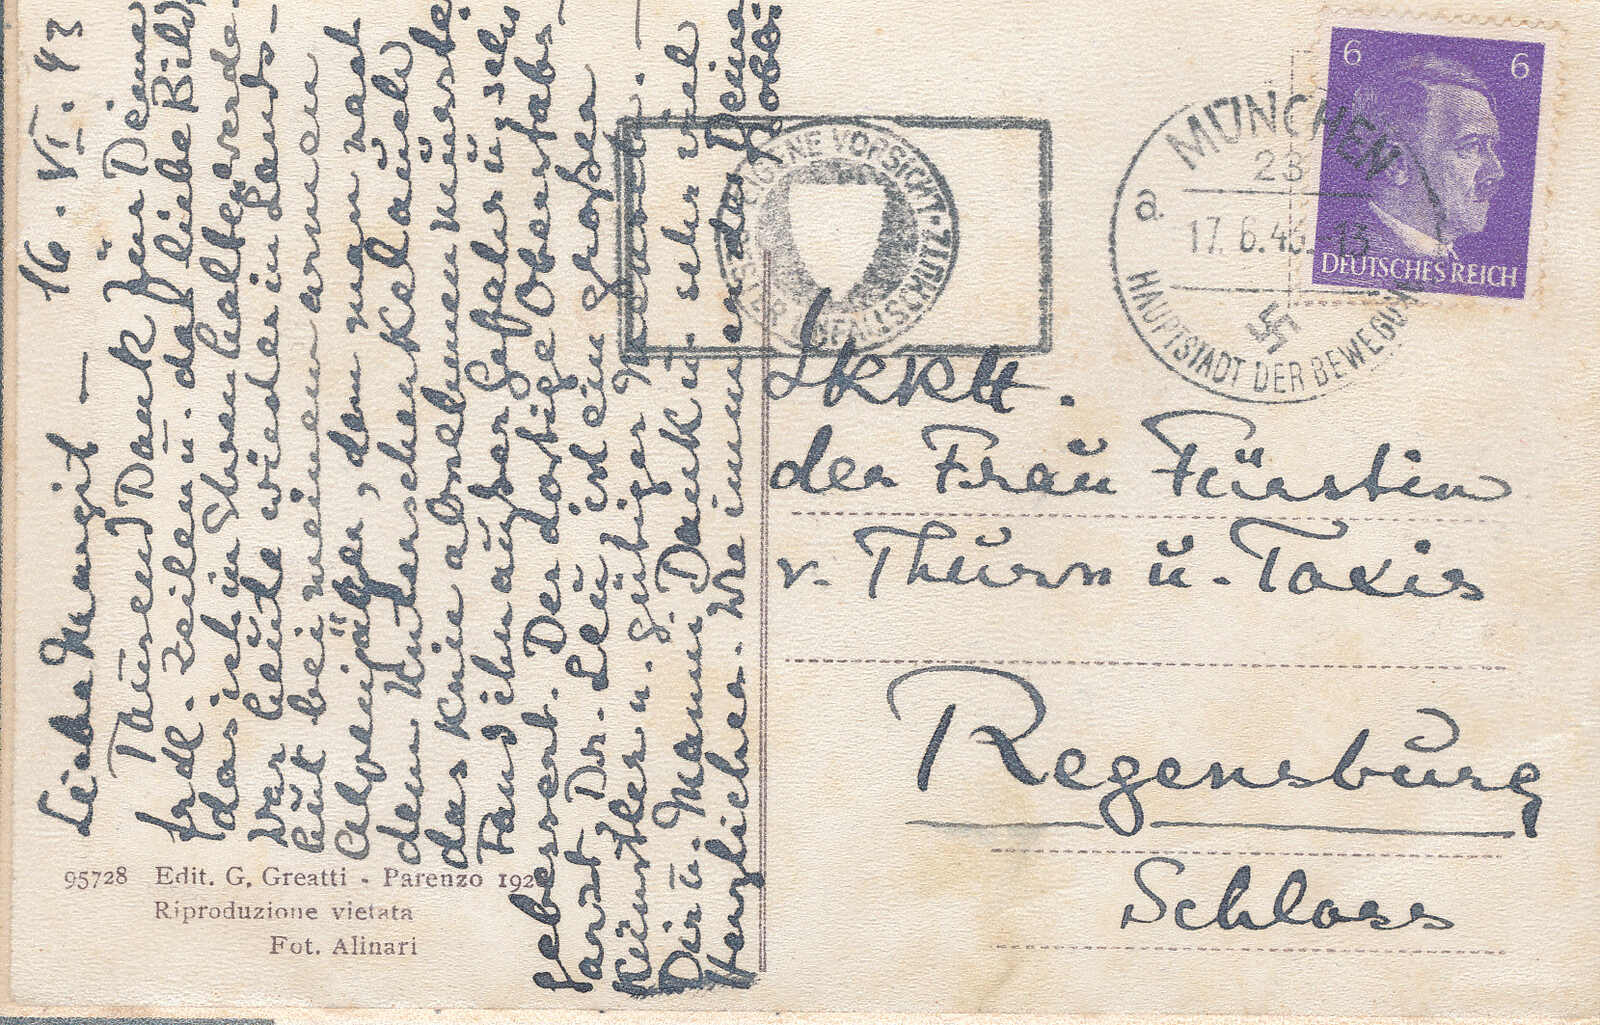 16.VI.43
Liebe Margit –
Tausend Dank für Deine
frdl. Zeilen u. das liebe Bild,
das ich in Ehren halten werde.
War heute wieder in Lands-
hut bei meinem armen
, dem man nach
dem Unterschenkel auch
das Knie abnehmen musste.
Fand ihn ausser Gefahr u.
gebessert. Der dortige Oberstabs-
arzt Dr. Leu ist ein großer
Künstler u. gütiger Mensch. –
Dir u. Mami Dank u. sehr viel
Herzliches. Wie immer der Deine
95728 Edit. G. Greatti - Parenzo 192
Riproduzione vietata
Fot. Alinari
EIGNE VORSICHT·
UNFALLSCHUTZ
MÜNCHEN
23
a.
17.6.43.-13
HAUPTSTADT DER BEWEGUNG
6 6
DEUTSCHES REICH
der Frau Fürstin
v. Thurn u. Taxis
Regensburg
Schloss